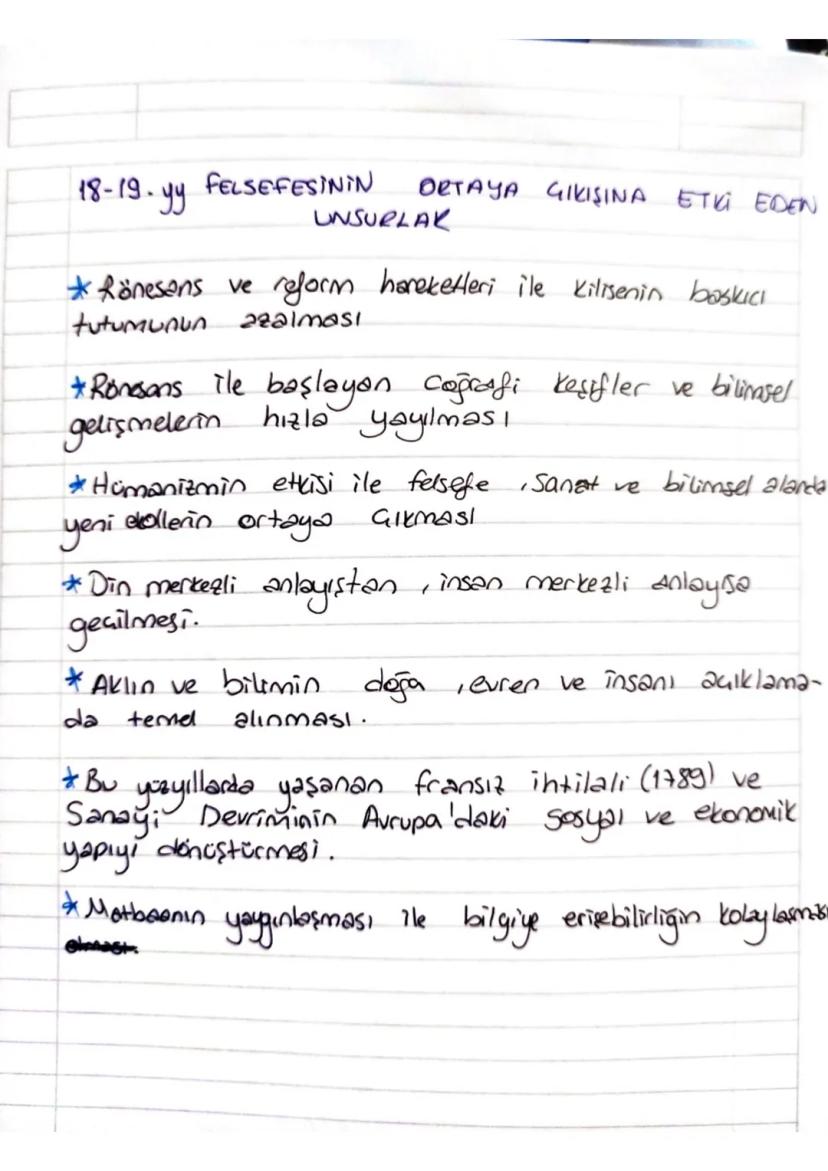 18-19.yy FELSEFESİNİN ORTAYA ÇIKIŞINA ETKİ EDEN
UNSURLAR
* Rönesans ve reform hareketleri ile kilisenin baskıcı
tutumunun azalması
* Rönesans ile başlayan Coğrafi keşifler ve bilimsel
gelişmelerin hızla yayılması
* Hümanizmin etkisi ile felsefe, sanat ve bilimsel alanda
yeni ekollerin ortaya çıkması
* Din merkezli anlayıştan, insan merkezli anlayışa
geçilmesi.
* Aklın ve bilimin doğa, evren ve insanı açıklama-
da temel alınması.
* Bu yüzyıllarda yaşanan fransız ihtilali (1789) ve
Sanayi Devriminin Avrupa'daki sosyal ve ekonomik
yapıyı dönüştürmesi.
* Matbaanın yaygınlaşması ile bilgiye erişebilirliğin kolaylaşması